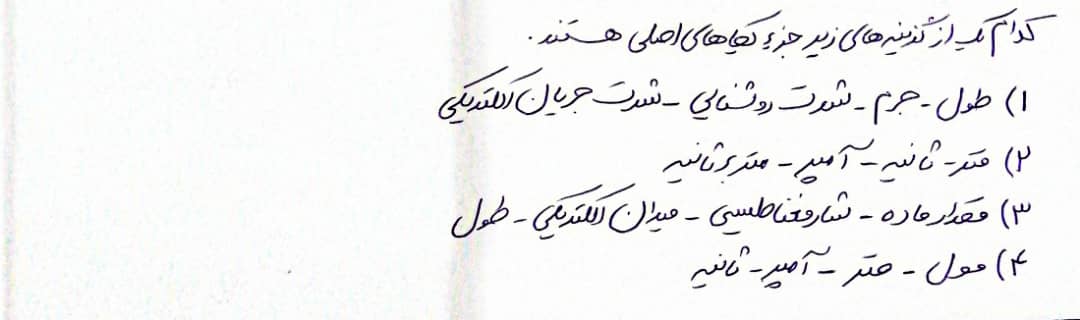 کدام یک از گزینه‌های زیر جزء یکاهای اصلی هستند.
۱) طول - جرم - شدت روشنایی - شدت جریان الکتریکی
۲) متر - ثانیه - آمپر - متر بر ثانیه
۳) مقدار ماده - شار مغناطیسی - میدان الکتریکی - طول
۴) مول - متر - آمپر - ثانیه